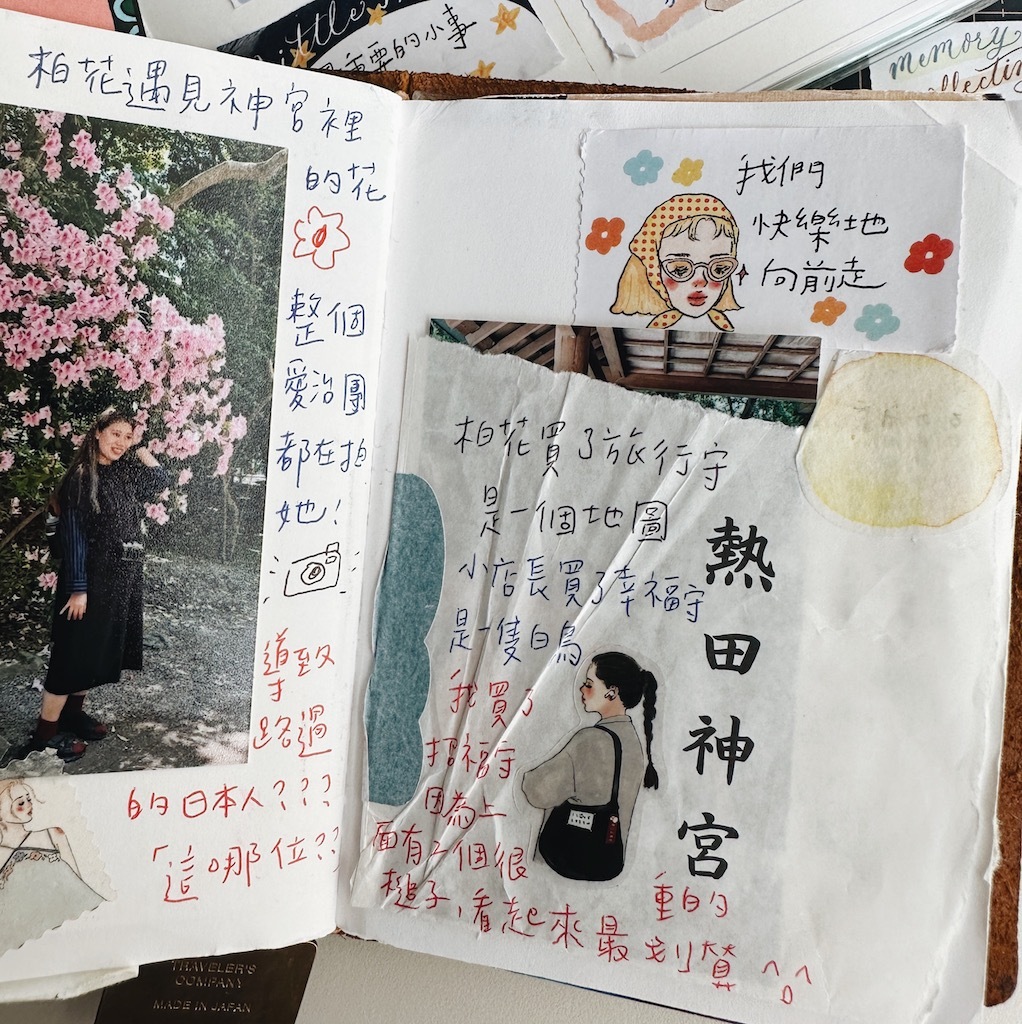 重要的小事
memory
柏花遇見神宮裡
的花
整個
愛治團
都在拍
她!
導致
路過
的日本人???
「這哪位??
我們
快樂地
向前走
柏花買了旅行守
是一個地圖
小店長買了幸福守
是一隻白鳥
我買了
招福守
因為上
面有一個很
重的
槌子,看起來最划算^o^
熱田神宮
TRAVELER'S
COMPANY
MADE IN JAPAN